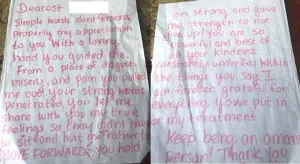 Dearest
Simple words dont express
properly my appreciation
to you. With a loving
hand you guided me.
From a place of disgust,
misery, and pain you pulled
me out. Your strong words
penetrated, you let me
share with you my true
feelings so they didnt have
to sit and hurt me rather to
MOVE FORWARD- you held
on strong and gave
my strength to not
give up! You are so
powerful and best of
all your kindness
constantly underlies within
the things you say I
am forever grateful for
everything youve put in
for my treatment.
Keep being an amazing
person! Thank you